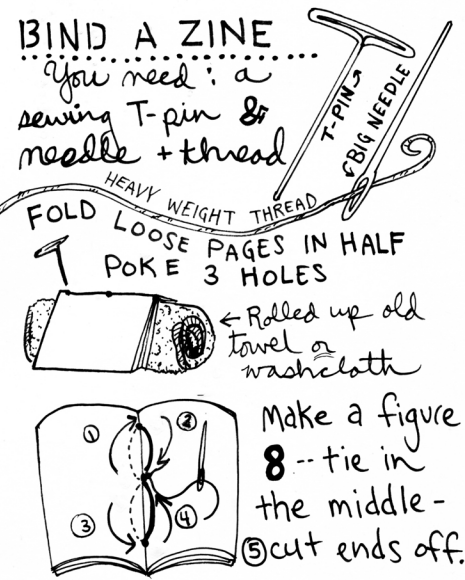 BIND A ZINE
You need: a
sewing T-pin &
needle + thread
T-PIN
BIG NEEDLE
HEAVY WEIGHT THREAD
FOLD LOOSE PAGES IN HALF
POKE 3 HOLES
← Rolled up old
towel or
washcloth
① ②
③ ④
Make a figure
8 -- tie in
the middle -
⑤ cut ends off.